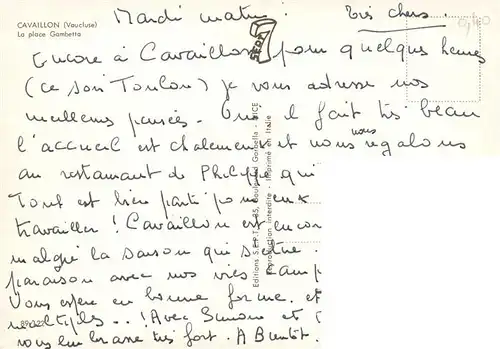 CAVAILLON (Vaucluse)
La place Gambetta
Mardi matin. Très chers.
Encore à Cavaillon pour quelques heures
(ce soir Toulon) je vous adresse nos
meilleures pensées. Ouf il fait très beau
l'accueil est chaleureux et nous nous régalons
au restaurant de Philippe qui
Tout est bien parti pour eux
travailler ! Cavaillon est encor
malgré la saison qui s'étire
paraison avec nos vies ramp
Vous espère en bonne forme. et
multiples..! Avec Simone et
vous embrasse très fort. A Bientôt.
SEPT 7
Editions S.E.P.T. 35, Boulevard Gorbella - NICE
Reproduction interdite - Imprimé en Italie